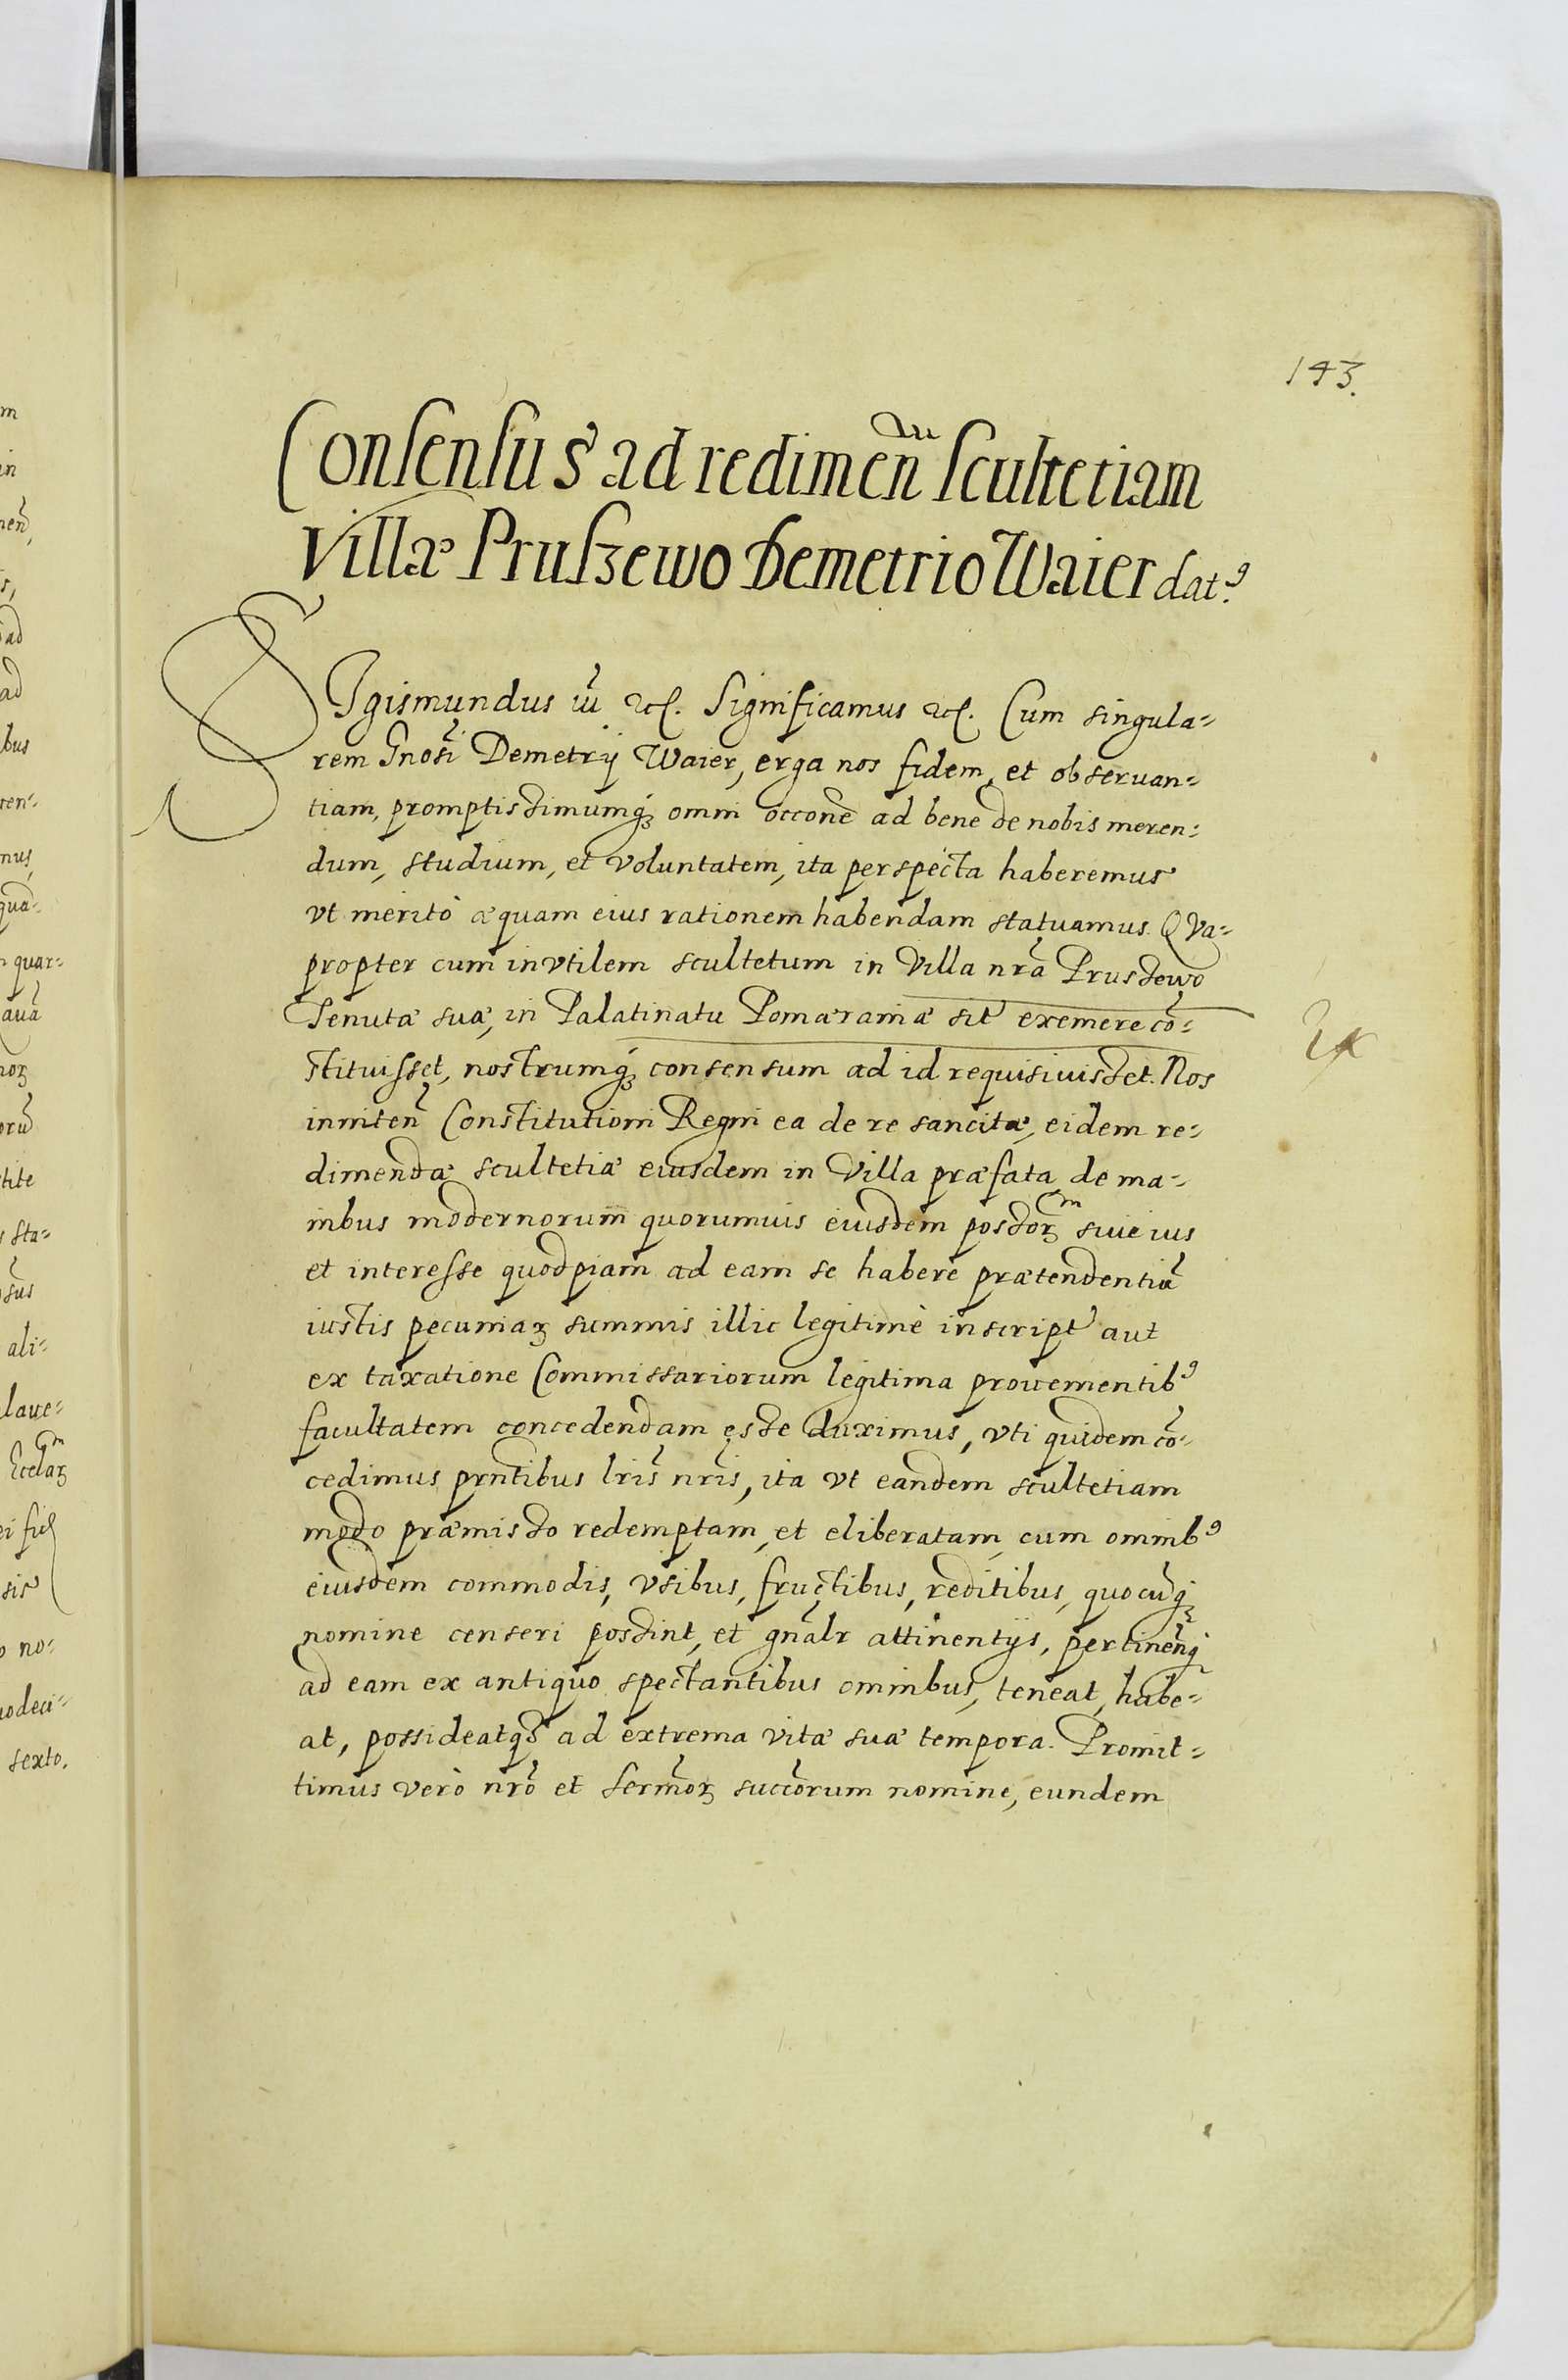 143.
Consensus ad redimen̄ scultetiam
Villæ Pruszewo Demetrio Waier datꝰ.
SIgismundus iii ꝛc. Significamus ꝛc. Cum singula-
rem Gnosi Demetrij Waier, erga nos fidem, et obseruan-
tiam, promptissimumq́ꝫ omni occone ad bene de nobis meren-
dum, studium, et voluntatem, ita perspecta haberemus
vt meritò æquam eius rationem habendam statuamus. QVa-
propter cum invtilem scultetum in Villa nrā Prussewo
Tenutæ suæ, in Palatinatu Pomæraniæ sit exemere cō-
stituisset, nostrumq́ꝫ consensum ad id requisiuisset. Nos
inniten̄ Constitutioni Regni ea de re sancitæ, eidem re-
dimendæ scultetiæ eiusdem in Villa præfata, de ma-
nibus modernorum quorumuis eiusdem possorꝫ siue ius
et interesse quodpiam ad eam se habere prætendentiū
iustis pecuniaꝝ summis illic legitimè inscript aut
ex taxatione Commissariorum legitima prouenientibꝰ
facultatem concedendam esse duximus, vti quidem cō-
cedimus prntibus lris nris, ita vt eandem scultetiam
modo præmisso redemptam, et eliberatam, cum omnibꝰ
eiusdem commodis, vsibus, fructibus, reditibus, quocūqꝫ
nomine censeri possint, et gnalr attinentijs, pertinenq̃
ad eam ex antiquo spectantibus omnibus, teneat, habe-
at, possideatqꝫ ad extrema vitæ suæ tempora. Promit-
timus verò nrō et Sermoꝝ succorum nomine, eundem